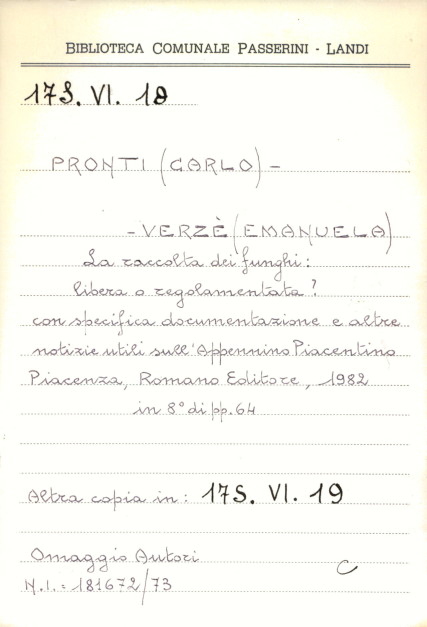 BIBLIOTECA COMUNALE PASSERINI - LANDI
17S. VI. 18
PRONTI (CARLO) -
- VERZÈ (EMANUELA)
La raccolta dei funghi:
libera o regolamentata?
con specifica documentazione e altre
notizie utili sull'Appennino Piacentino
Piacenza, Romano Editore, 1982
in 8° di pp. 64
Altra copia in: 17S. VI. 19
Omaggio Autori
C
N.I.: 181672/73